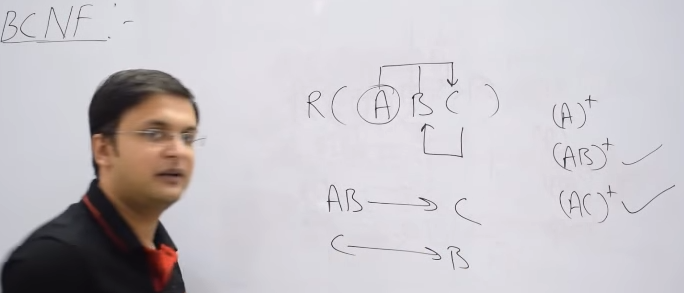 BCNF:-
R(ABC)
AB → C
C → B
(A)⁺
(AB)⁺ ✓
(AC)⁺ ✓